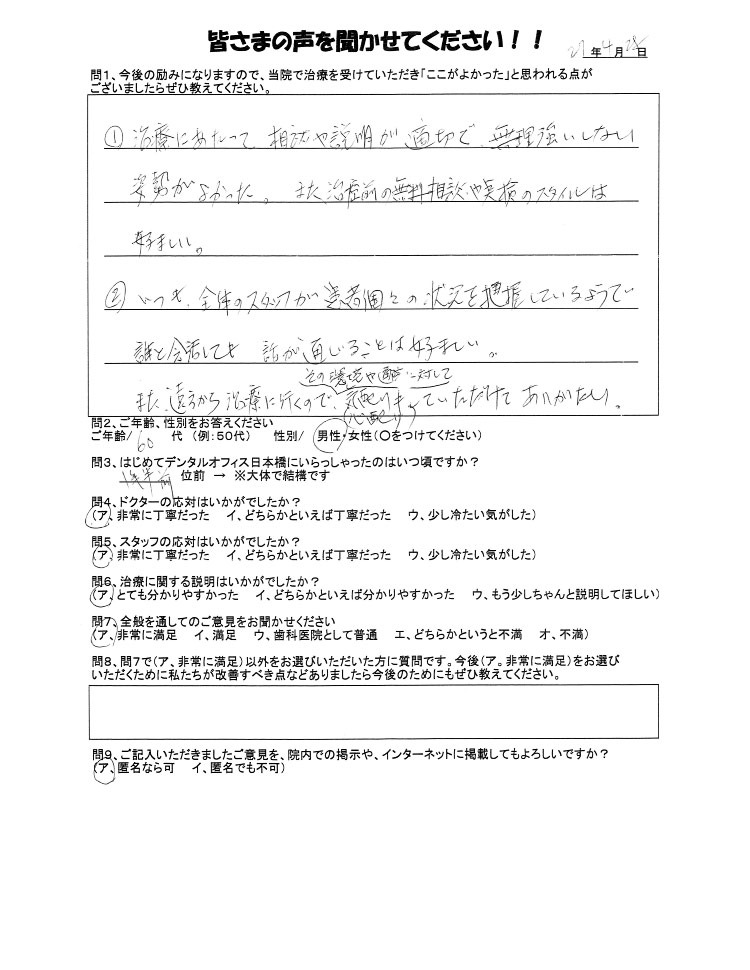 皆さまの声を聞かせてください！！
27年4月28日
問1、今後の励みになりますので、当院で治療を受けていただき「ここがよかった」と思われる点が
ございましたらぜひ教えてください。
① 治療にあたって、相談や説明が適切で、無理強いしない
姿勢がよかった。また治療前の無料相談や実検のスタイルは
好ましい。
② いつも、全体のスタッフが患者個々の状況を把握しているようで
誰と会話しても 話が通じることは好ましい。
その環境や に対して
また遠方から治療に行くので、気配りをしていただけてありがたい。
心配り
問2、ご年齢、性別をお答えください
ご年齢/ 60 代 （例：50代） 性別/ 男性・女性（○をつけてください）
問3、はじめてデンタルオフィス日本橋にいらっしゃったのはいつ頃ですか？
半年前 位前 → ※大体で結構です
問4、ドクターの応対はいかがでしたか？
（ア、非常に丁寧だった イ、どちらかといえば丁寧だった ウ、少し冷たい気がした）
問5、スタッフの応対はいかがでしたか？
（ア、非常に丁寧だった イ、どちらかといえば丁寧だった ウ、少し冷たい気がした）
問6、治療に関する説明はいかがでしたか？
（ア、とても分かりやすかった イ、どちらかといえば分かりやすかった ウ、もう少しちゃんと説明してほしい）
問7、全般を通してのご意見をお聞かせください
（ア、非常に満足 イ、満足 ウ、歯科医院として普通 エ、どちらかというと不満 オ、不満）
問8、問7で（ア、非常に満足）以外をお選びいただいた方に質問です。今後（ア。非常に満足）をお選び
いただくために私たちが改善すべき点などありましたら今後のためにもぜひ教えてください。
問9、ご記入いただきましたご意見を、院内での掲示や、インターネットに掲載してもよろしいですか？
（ア、匿名なら可 イ、匿名でも不可）